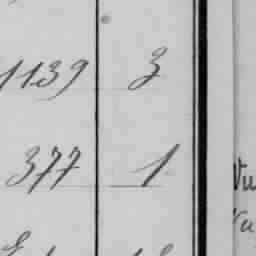 1139 3
377 1
Vu